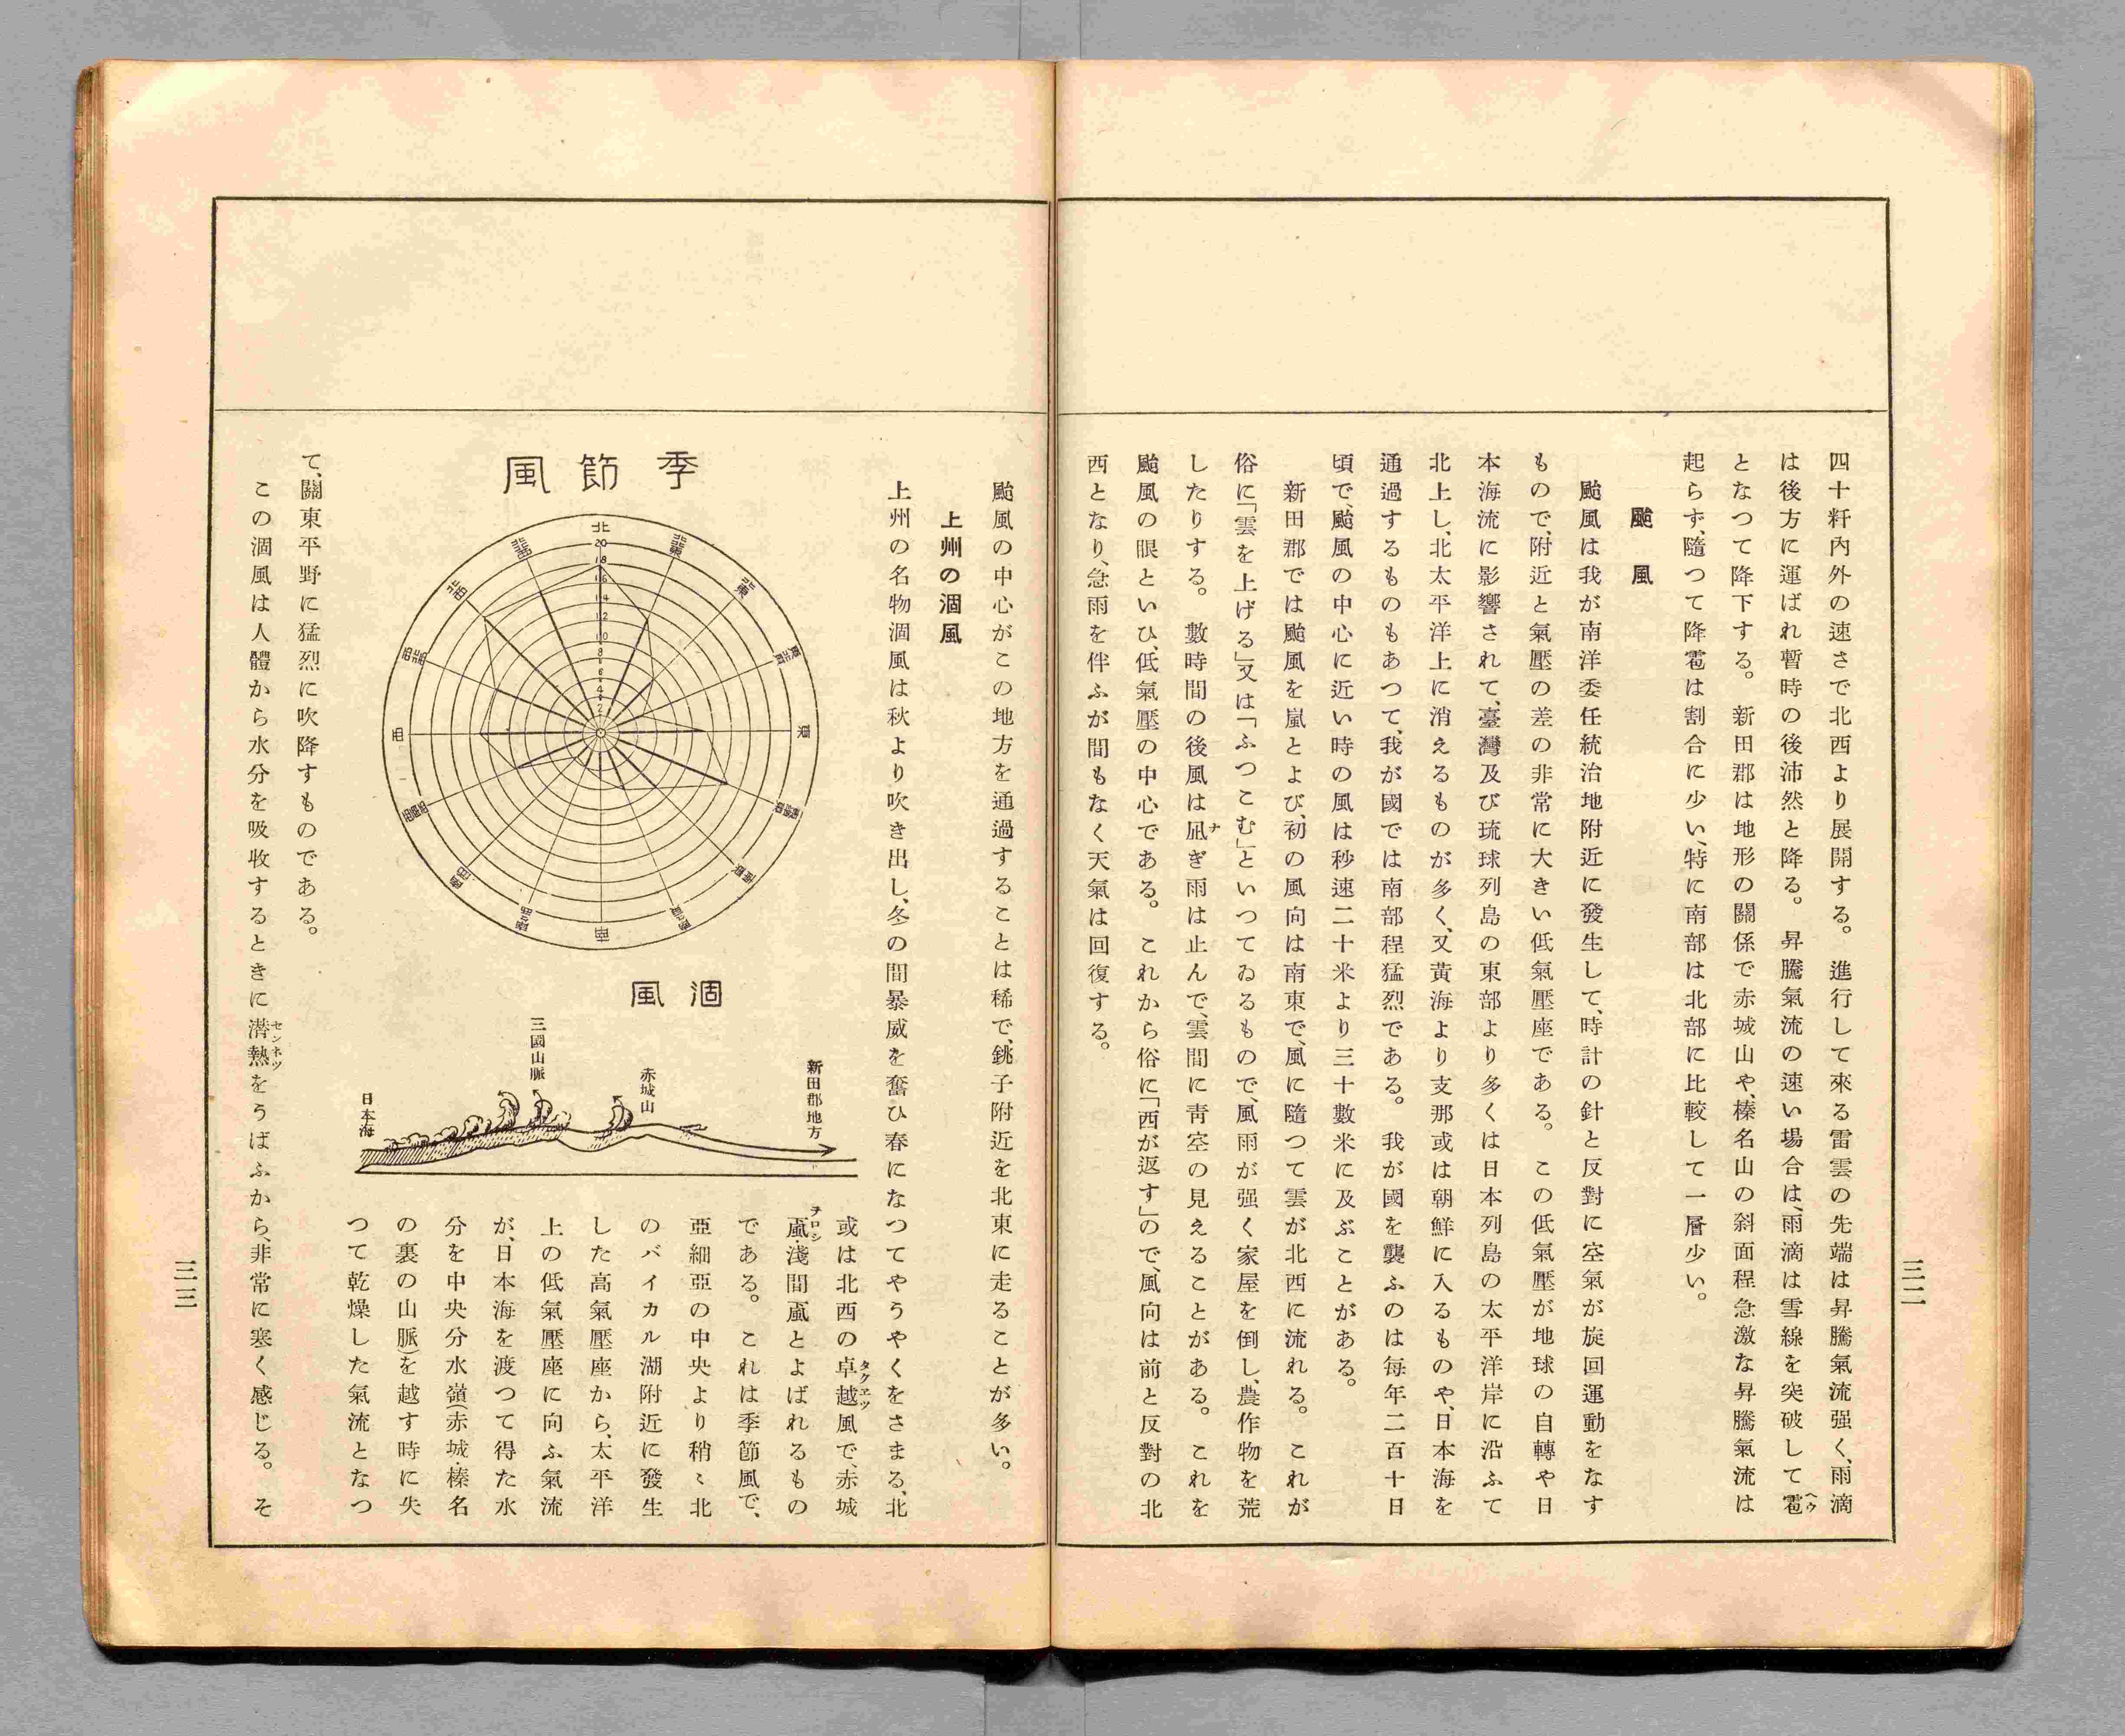 四十粁內外の速さで北西より展開する。進行して來る雷雲の先端は昇騰氣流强く、雨滴
は後方に運ばれ暫時の後沛然と降る。昇騰氣流の速い場合は、雨滴は雪線を突破して雹ヘウ
となつて降下する。新田郡は地形の關係で赤城山や、榛名山の斜面程急激な昇騰氣流は
起らず、隨つて降雹は割合に少い、特に南部は北部に比較して一層少い。
颱風
颱風は我が南洋委任統治地附近に發生して、時計の針と反對に空氣が旋回運動をなす
もので、附近と氣壓の差の非常に大きい低氣壓座である。この低氣壓が地球の自轉や日
本海流に影響されて、臺灣及び琉球列島の東部より多くは日本列島の太平洋岸に沿ふて
北上し、北太平洋上に消えるものが多く、又黃海より支那或は朝鮮に入るものや、日本海を
通過するものもあつて、我が國では南部程猛烈である。我が國を襲ふのは每年二百十日
頃で、颱風の中心に近い時の風は秒速二十米より三十數米に及ぶことがある。
新田郡では颱風を嵐とよび、初の風向は南東で、風に隨つて雲が北西に流れる。これが
俗に「雲を上げる」又は「ふつこむ」といつてゐるもので、風雨が强く家屋を倒し、農作物を荒
したりする。數時間の後風は凪ナぎ雨は止んで、雲間に靑空の見えることがある。これを
颱風の眼といひ、低氣壓の中心である。これから俗に「西が返す」ので、風向は前と反對の北
西となり、急雨を伴ふが間もなく天氣は回復する。
三二
颱風の中心がこの地方を通過することは稀で、銚子附近を北東に走ることが多い。
上州の涸風
上州の名物涸風は秋より吹き出し、冬の間暴威を奮ひ春になつてやうやくをさまる、北
季節風
北
北北東
北東
東北東
東
東南東
南東
南南東
南
南南西
南西
西南西
西
西北西
北西
北北西
20
18
16
14
12
10
8
6
4
2
涸風
新田郡地方
赤城山
三國山脈
日本海
或は北西の卓越タクエツ風で、赤城
颪オロシ・淺間颪とよばれるもの
である。これは季節風で、
亞細亞の中央より稍〻北
のバイカル湖附近に發生
した高氣壓座から、太平洋
上の低氣壓座に向ふ氣流
が、日本海を渡つて得た水
分を中央分水嶺(赤城・榛名
の裏の山脈)を越す時に失
つて乾燥した氣流となつ
て、關東平野に猛烈に吹降すものである。
この涸風は人體から水分を吸收するときに潛熱センネツをうばふから、非常に寒く感じる。そ
三三